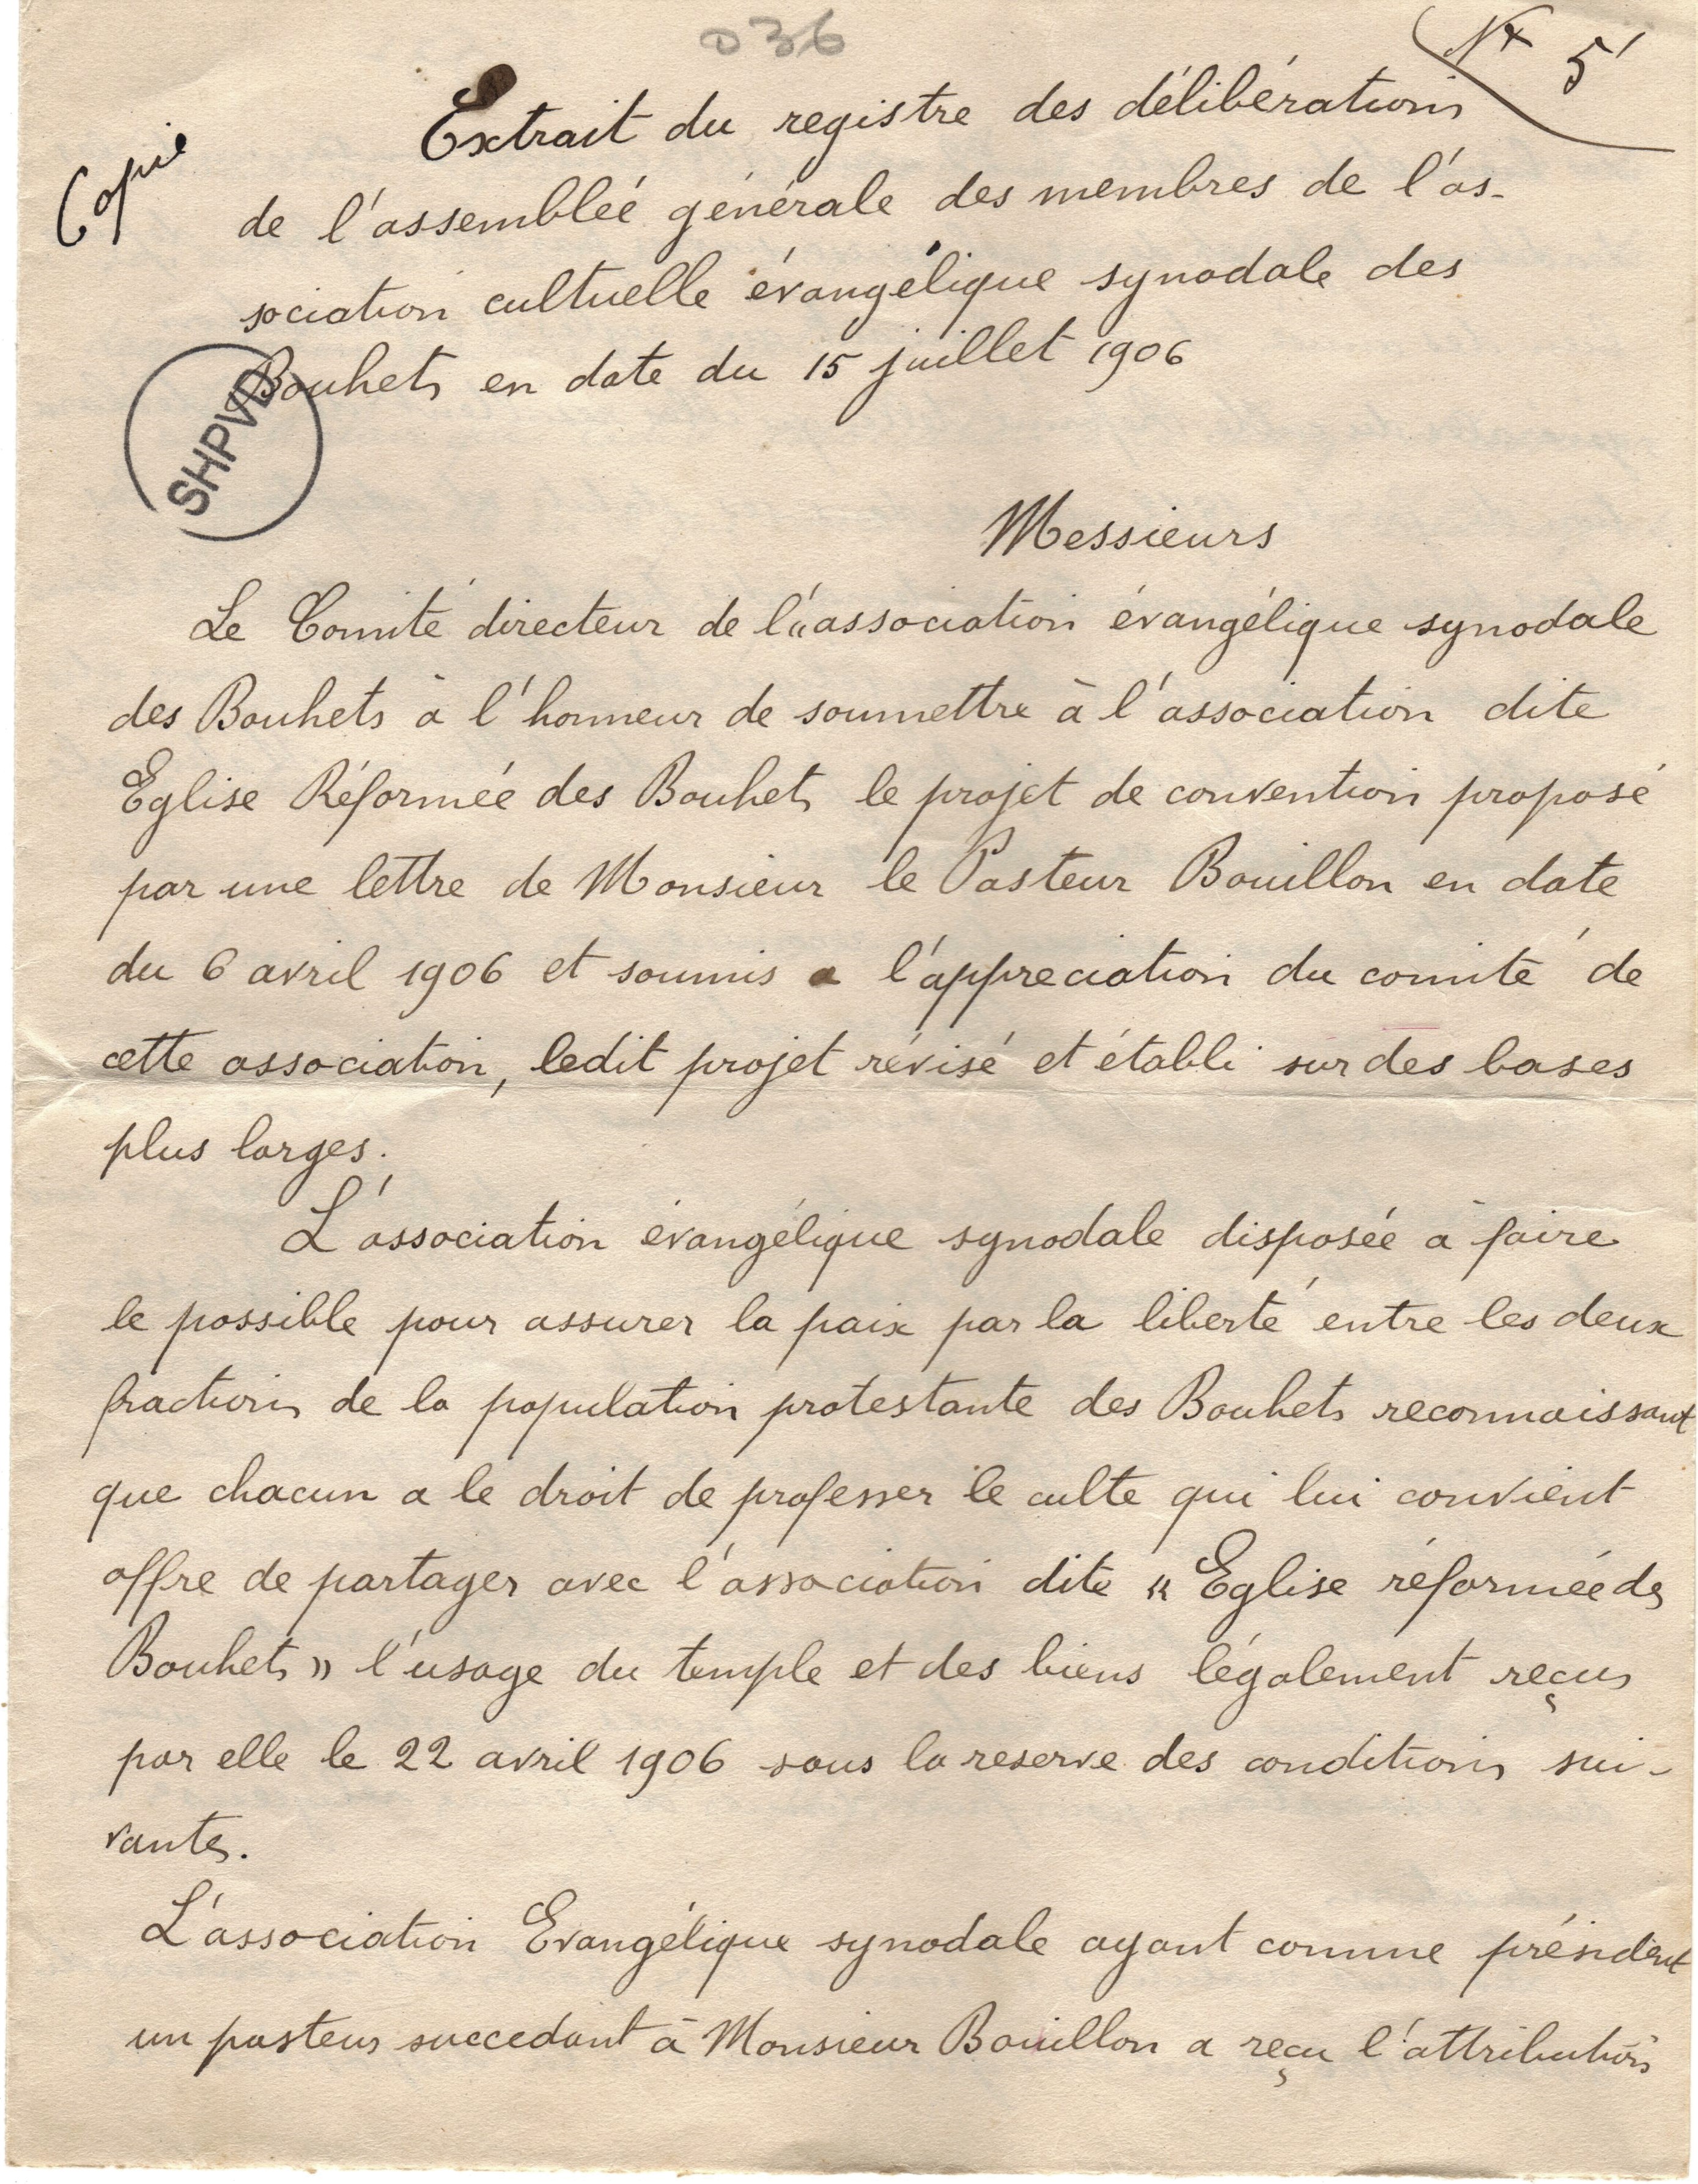 036
Nº 5
Copie
Extrait du registre des délibérations
de l'assemblée générale des membres de l'as-
sociation cultuelle évangélique synodale des
Bouhets en date du 15 juillet 1906
SHPVD
Messieurs
Le Comité directeur de l'"association évangélique synodale
des Bouhets à l'honneur de soumettre à l'association dite
Eglise Réformée des Bouhets le projet de convention proposé
par une lettre de Monsieur le Pasteur Bouillon en date
du 6 avril 1906 et soumis a l'appreciation du comité de
cette association, ledit projet révisé et établi sur des bases
plus larges.
L'association évangélique synodale disposée à faire
le possible pour assurer la paix par la liberté entre les deux
fractions de la population protestante des Bouhets reconnaissant
que chacun a le droit de professer le culte qui lui convient
offre de partager avec l'association dite « Eglise réformée des
Bouhets » l'usage du temple et des biens légalement reçus
par elle le 22 avril 1906 sous la reserve des conditions sui-
vantes.
L'association Evangélique synodale ayant comme président
un pasteur succedant à Monsieur Bouillon a reçu l'attribution